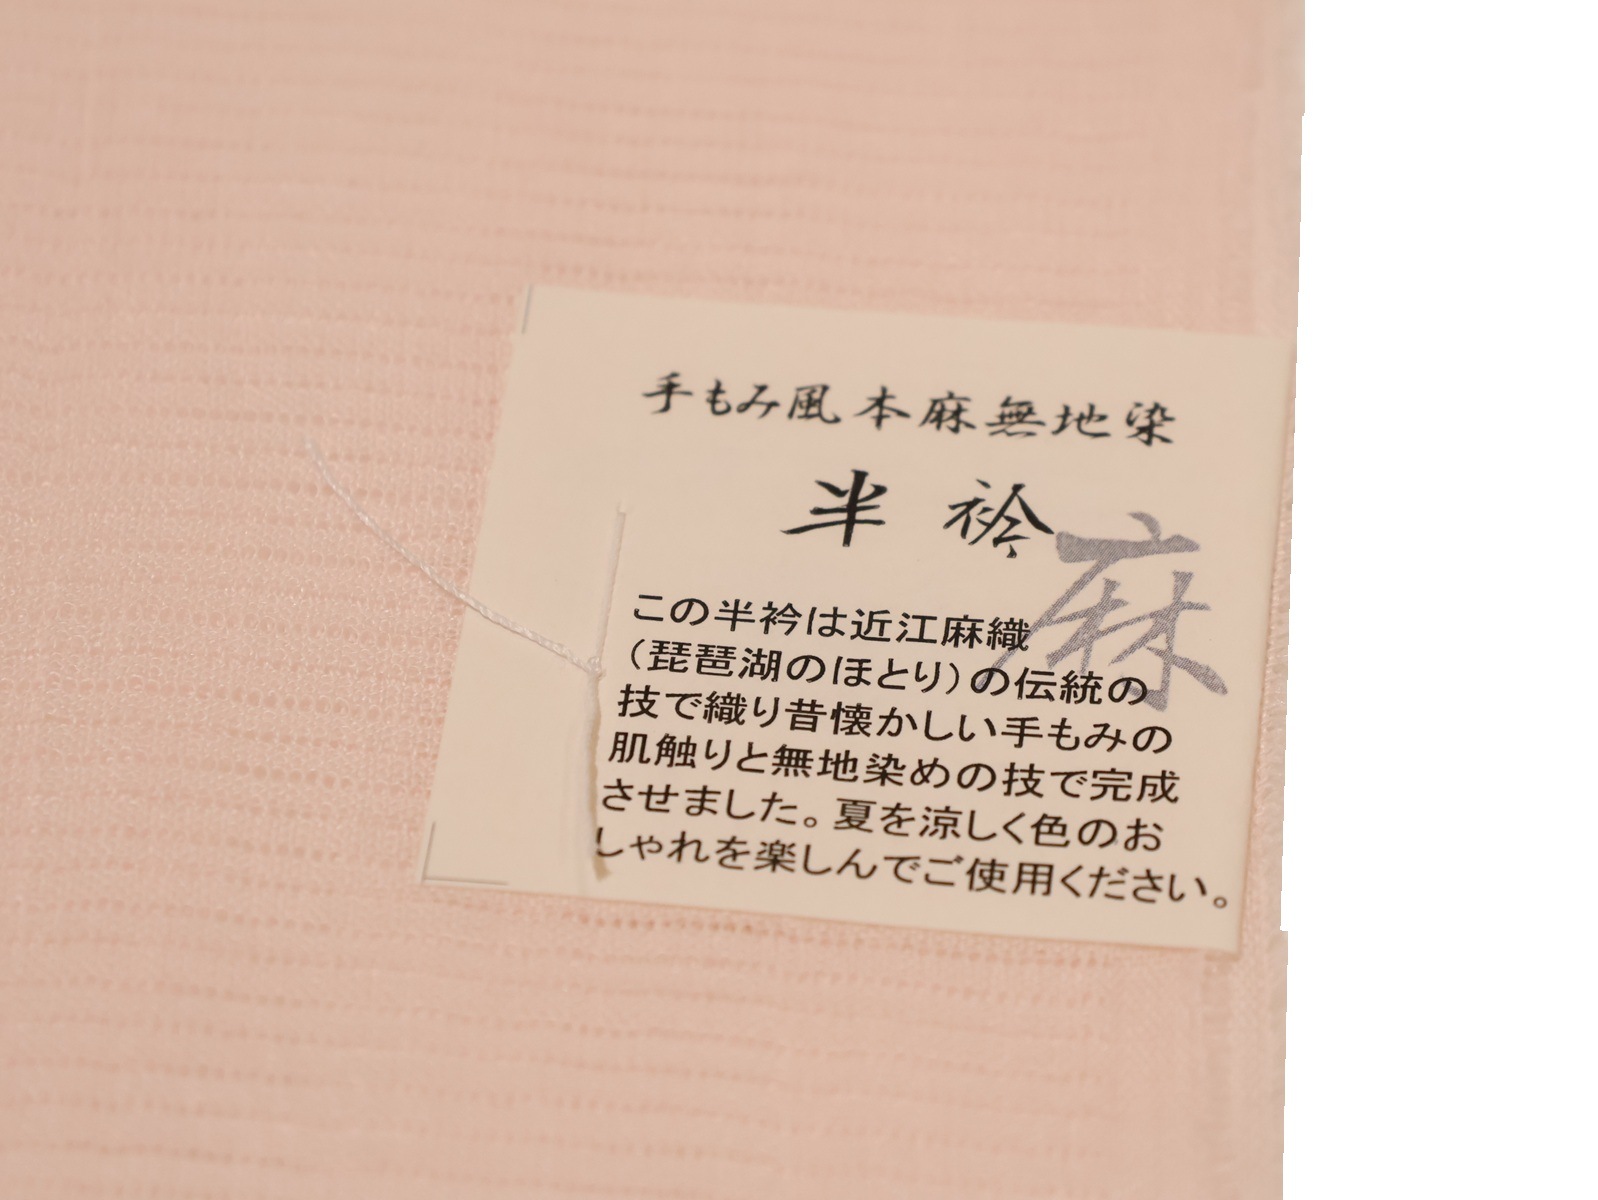 手もみ風本麻無地染
半衿
麻
この半衿は近江麻織
（琵琶湖のほとり）の伝統の
技で織り昔懐かしい手もみの
肌触りと無地染めの技で完成
させました。夏を涼しく色のお
しゃれを楽しんでご使用ください。